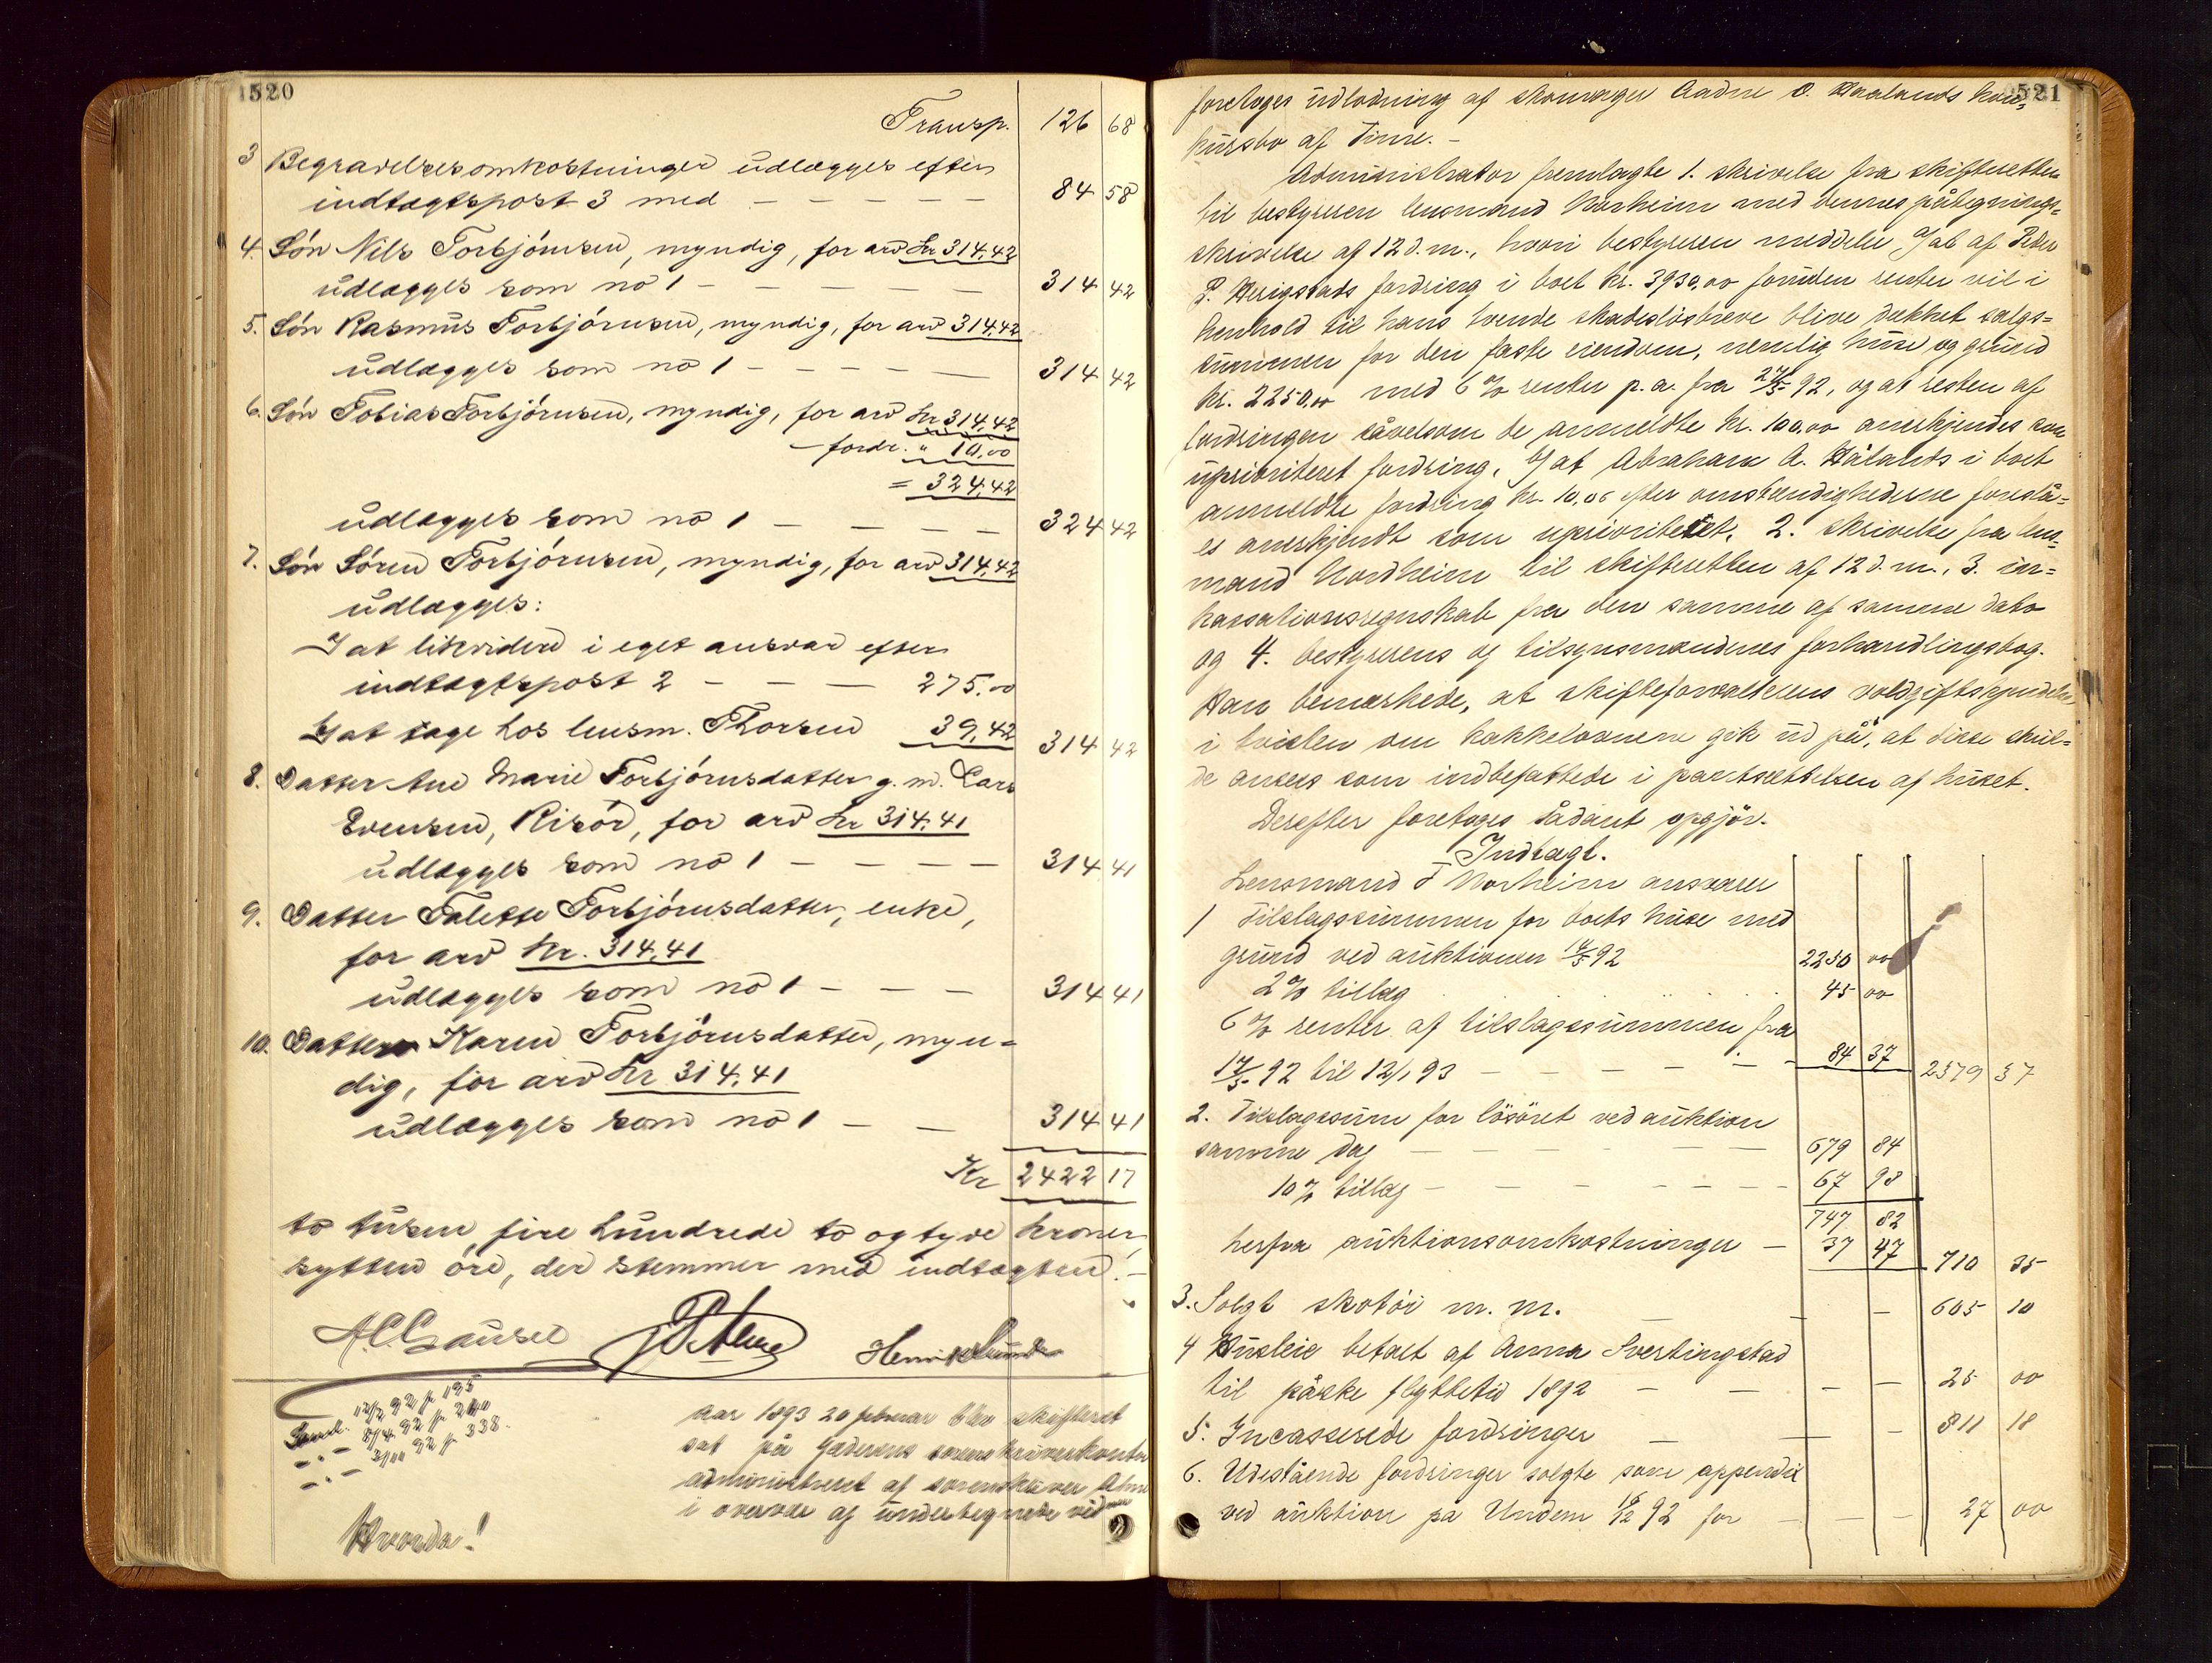 520
Transp. 126 68
3 Begravelsesomkostninger udlægges efter
indtægtspost 3 med — — — — — 84 58
4. Sön Nils Torbjörnsen, myndig, for arv Kr 314,42
udlægges som no 1 — — — — — 314 42
5. Sön Rasmus Torbjörnsen, myndig, for arv 314,42
udlægges som no 1 — — — — — 314 42
6. Sön Tobias Torbjörnsen, myndig, for arv Kr 314,42
— fordr. " 10,00
= 324,42
udlægges som no 1 — — — — 324 42
7. Sön Sören Torbjörnsen, myndig, for arv 314,42
udlægges:
I at likvidere i eget ansvar efter
indtægtspost 2 — — — 275.00
II at tage hos lensm. Thorsen 39,42 314 42
8. Datter Ane Marie Torbjörnsdatter g. m. Lars
Evensen, Risör, for arv Kr 314,41
udlægges som no 1 — — — — 314 41
9. Datter Talette Torbjörnsdatter, enke,
for arv Kr. 314,41
udlægges som no 1 — — — 314 41
10. Datter Karen Torbjörnsdatter, myn=
dig, for arv Kr 314,41
udlægges som no 1 — — 314 41
Kr 2422 17
to tusen fire hundrede to og tyve kroner
sytten öre, der stemmer med indtægten. —
A.C. Gausel Henrik Lunde
12/2 92 p 195
8/4 92 p 240
3/10 92 p 338.
Aar 1893 20 februar blev skifteret
sat på Jæderens sorenskriverkontor
administreret af sorenskriver
i overvær af undertegnede vidner
Hvorda!
521
foretoges udlodning af skomager Aadne O. Haalands kon=
kursbo af Time. —
Administrator fremlagte 1. skrivelse fra skifteretten
til bestyreren lensmand Norheim med dennes påtegnings=
skrivelse af 12 d.m., hvori bestyreren meddeler, I at af Peder
P. Herigstads fordring i boet kr. 3930,00 foruden renter vil i
henhold til hans tvende skadeslösbreve blive dækket salgs=
summen for den faste eiendom, nemlig huse og grund
kr. 2250,00 med 6 % renter p. a. fra 27/5 92, og at resten af
fordringen såvelsom de anmeldte kr. 100,00 anerkjendes som
uprioriteret fordring, II at Abraham A. Hålands i boet
anmeldte fordring kr. 10,00 efter omstændighederne foreslå=
es anerkjendt som uprioriteret, 2. skrivelse fra lens=
mand Nordheim til skifteretten af 12 d. m., 3. in=
kassationsregnskab fra den samme af samme dato
og 4. bestyrerens og tilsynsmændenes forhandlingsbog.
Han bemærkede, at skifteforvalterens voldgiftskjendelse
i tvisten om kakkelovnene gik ud på, at disse skul=
de ansees som indbefattede i pantsættelsen af huset.
Derefter foretoges sådant opgjör.
Indtægt.
Lensmand T Norheim ansvarer
1 Tilslagssummen for boets huse med
grund ved auktionen 14/5 92 2250 00
2 % tillæg 45 00
6 % renter af tilslagssummen fra
14/5 92 til 12/1 93 — — — — — — 84 37 2379 37
2. Tilslagssum for lösöret ved auktion
samme dag — — — — — — 679 84
10 % tillæg — — — — — — 67 98
747 82
herfra auktionsomkostninger — 37 47 710 35
3. Solgt skotöi m. m. — — 605 10
4 Husleie betalt af Anna Svertingstad
til påske flyttetid 1892 — — — — 25 00
5. Incasserede fordringer — — — 811 18
6. Udestående fordringer solgte som appendix
ved auktion på Undem 19/12 92 for — — — 27 00